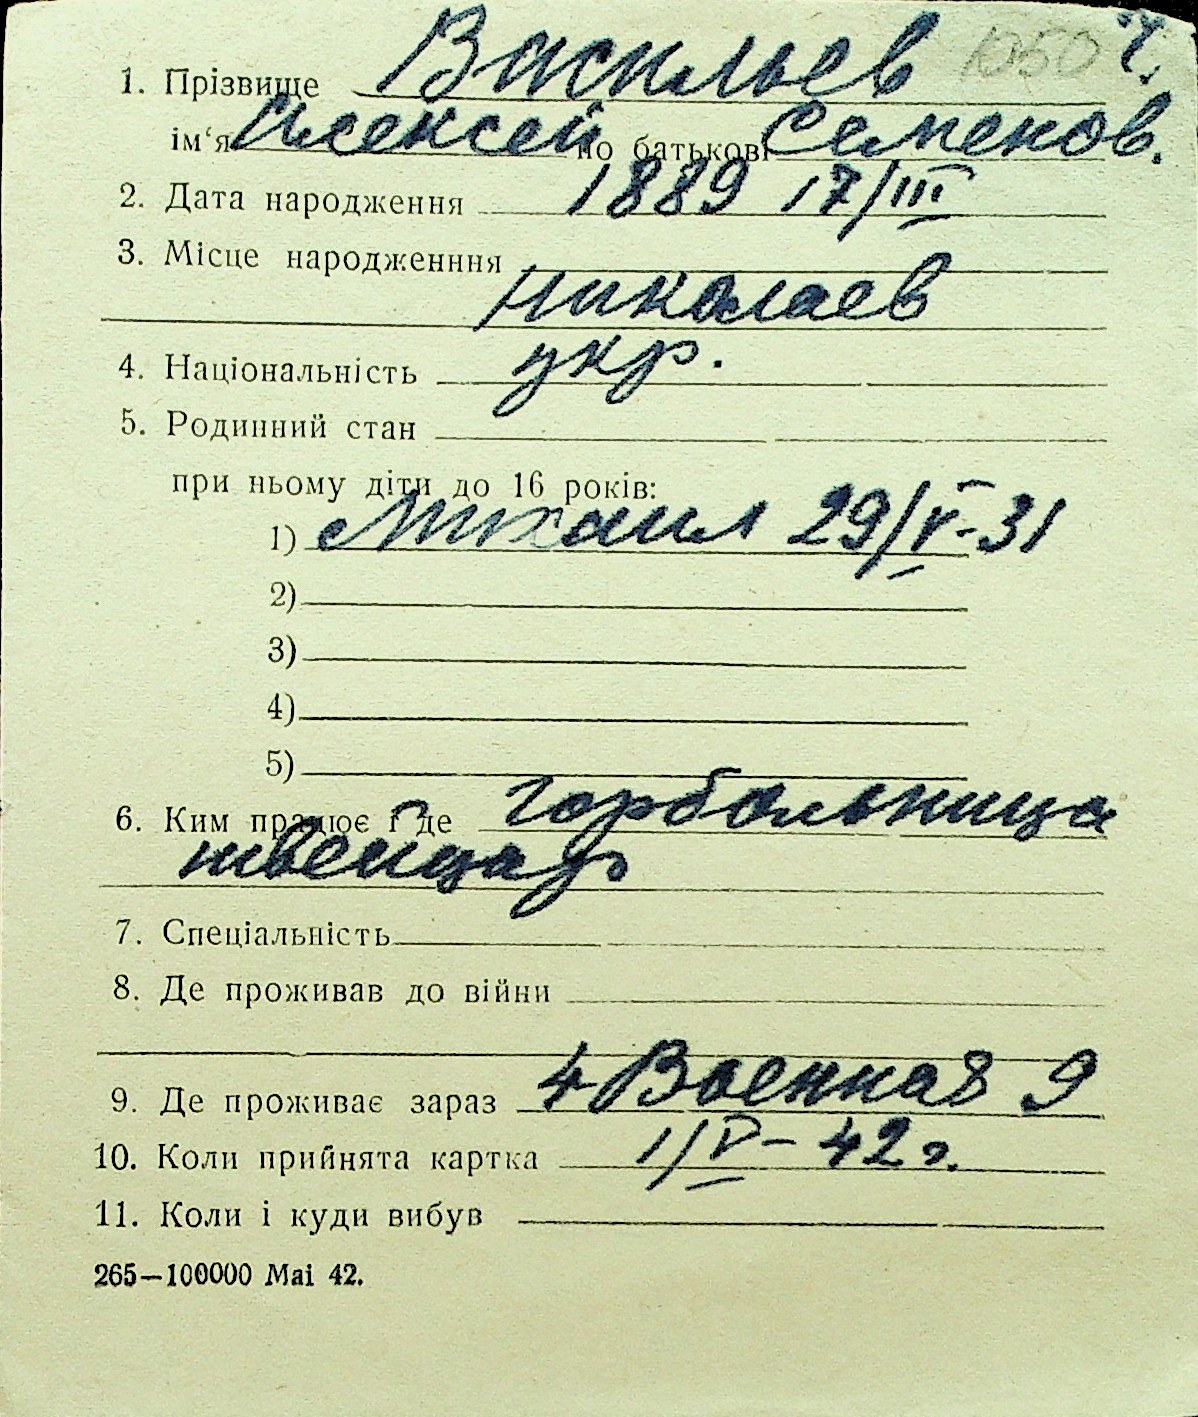 1050 ч.
1. Прізвище Васильев
ім‘я Алексей по батькові Семенов.
2. Дата народження 1889 17/III
3. Місце народженння
Николаев
4. Національність укр.
5. Родинний стан
при ньому діти до 16 років:
1) Михаил 29/V-31
2)
3)
4)
5)
6. Ким працює і де Горбольница
швейцар
7. Спеціальність
8. Де проживав до війни
9. Де проживає зараз 4 Военная 9
10. Коли прийнята картка 1/V-42 г.
11. Коли і куди вибув
265—100000 Mai 42.